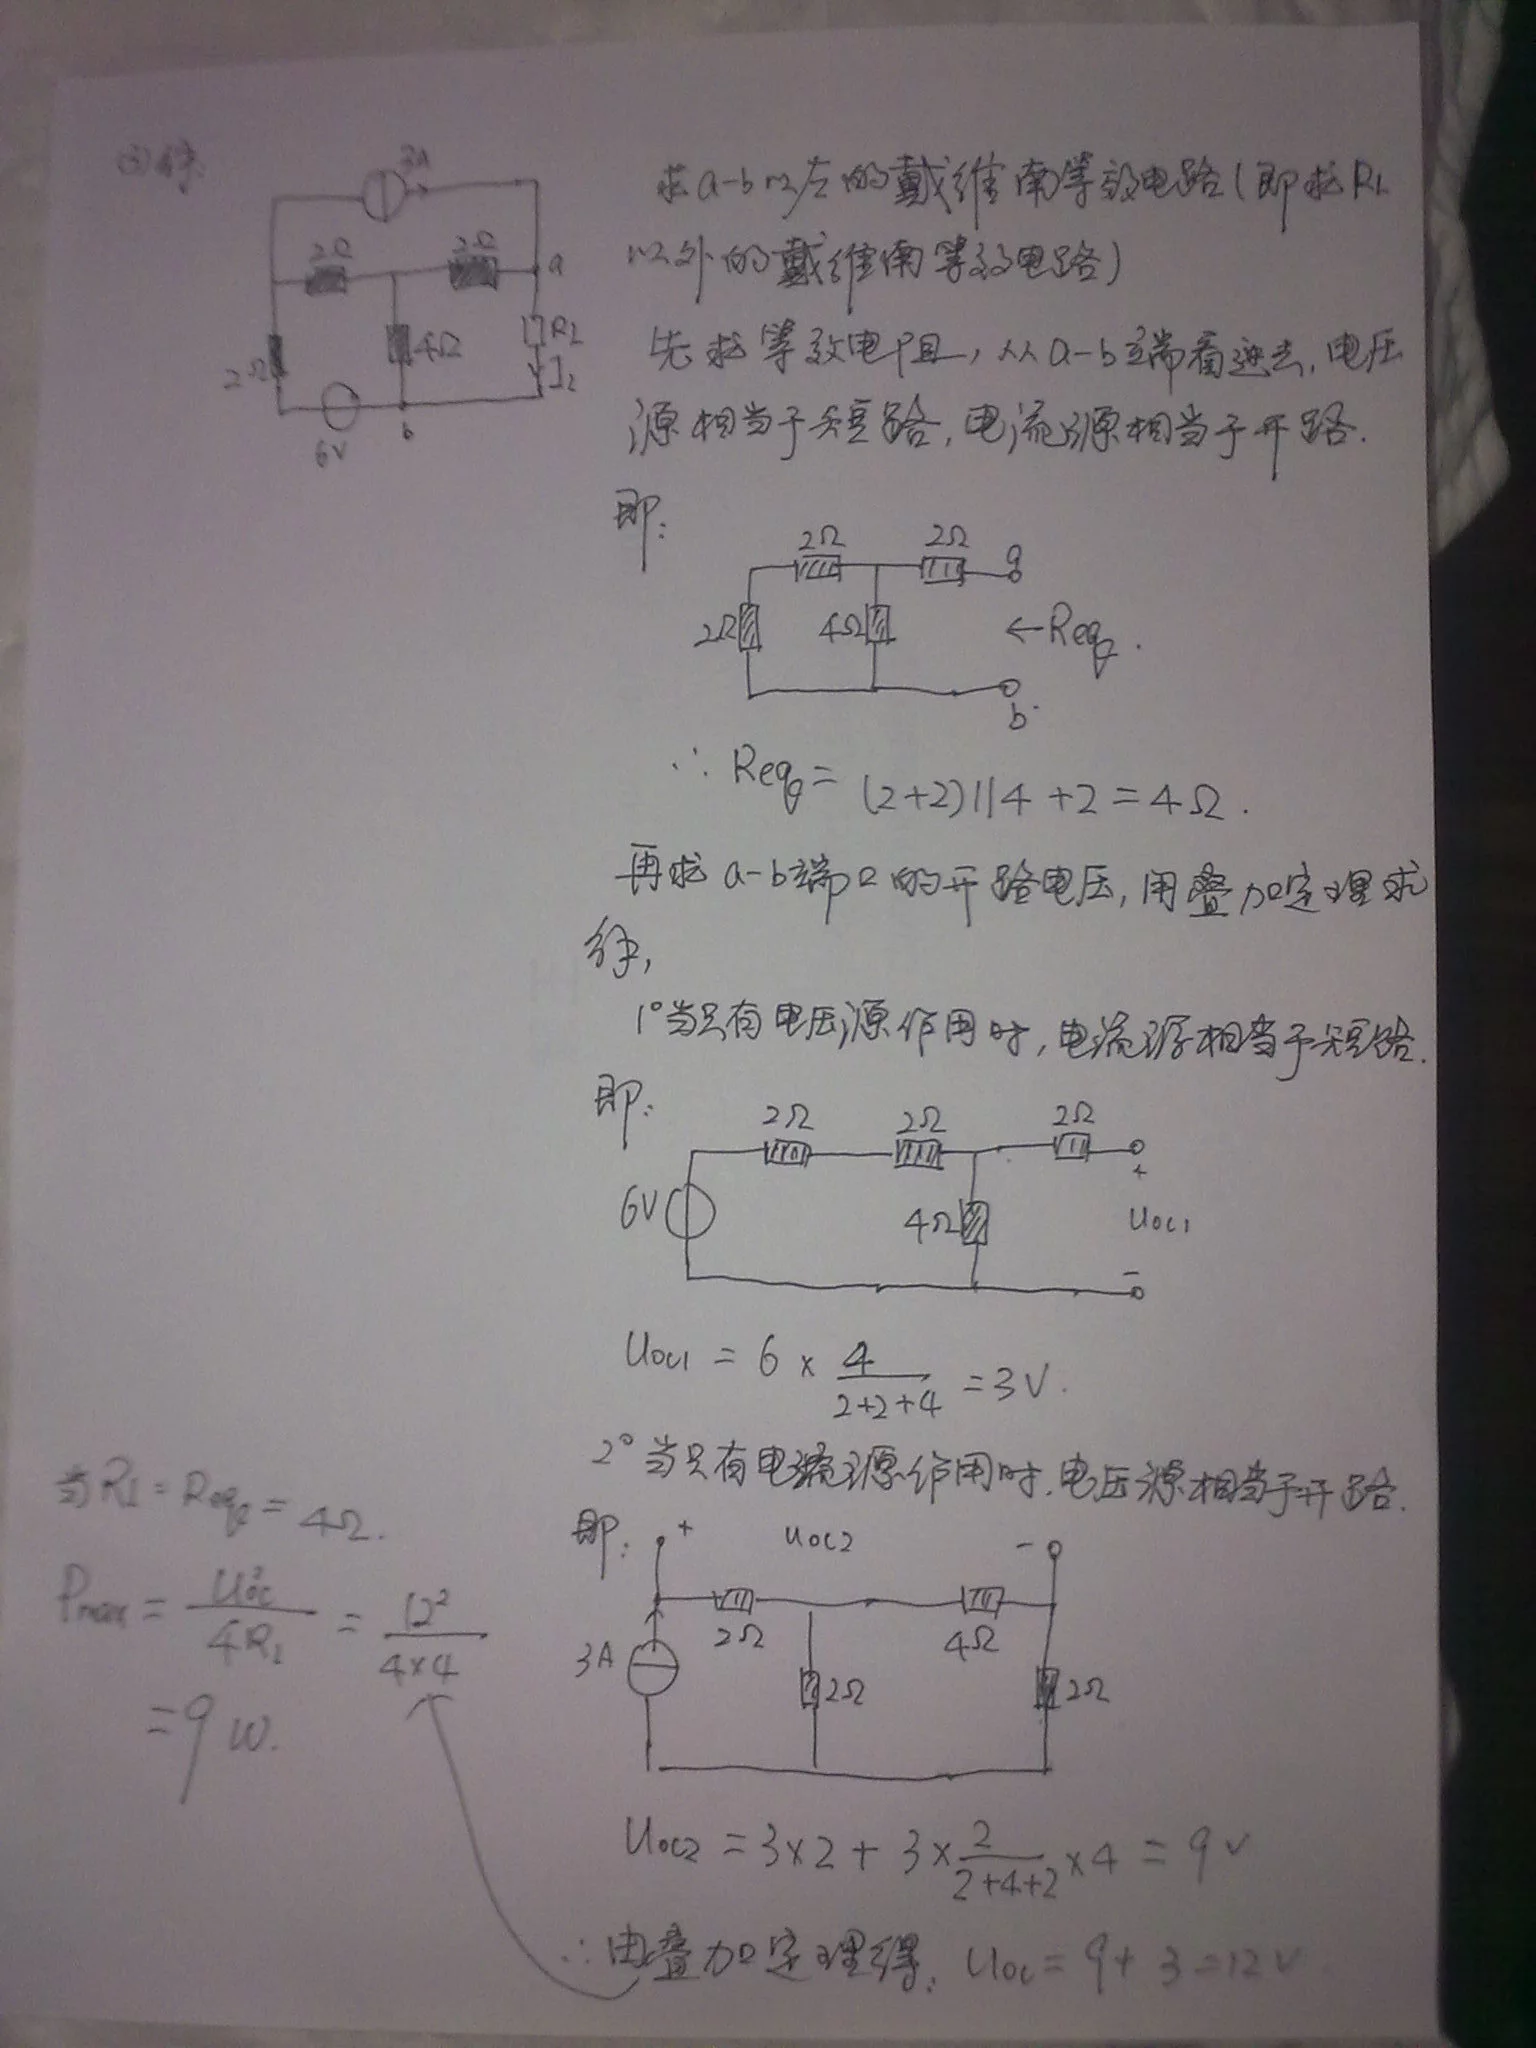 (3)解:
3A
2Ω
2Ω
a
2Ω
4Ω
RL
IL
6V
b
求a-b以左的戴维南等效电路(即求RL
以外的戴维南等效电路)
先求等效电阻,从a-b端看进去,电压
源相当于短路,电流源相当于开路.
即:
2Ω
2Ω
a
2Ω
4Ω
←Req.
b.
∴ Req = (2+2)//4+2=4Ω.
再求a-b端口的开路电压,用叠加定理求
解,
1°当只有电压源作用时,电流源相当于短路.
即:
2Ω
2Ω
2Ω
6V
4Ω
+
uoc1
-
Uoc1 = 6 × 4/(2+2+4) = 3V.
2°当只有电流源作用时,电压源相当于开路.
即:
+
uoc2
-
2Ω
4Ω
3A
2Ω
2Ω
Uoc2 = 3×2 + 3×2/(2+4+2)×4 = 9V
∴由叠加定理得, Uoc = 9+3=12V.
当RL=Req=4Ω.
Pmax = Uoc²/4RL = 12²/4×4
=9W.